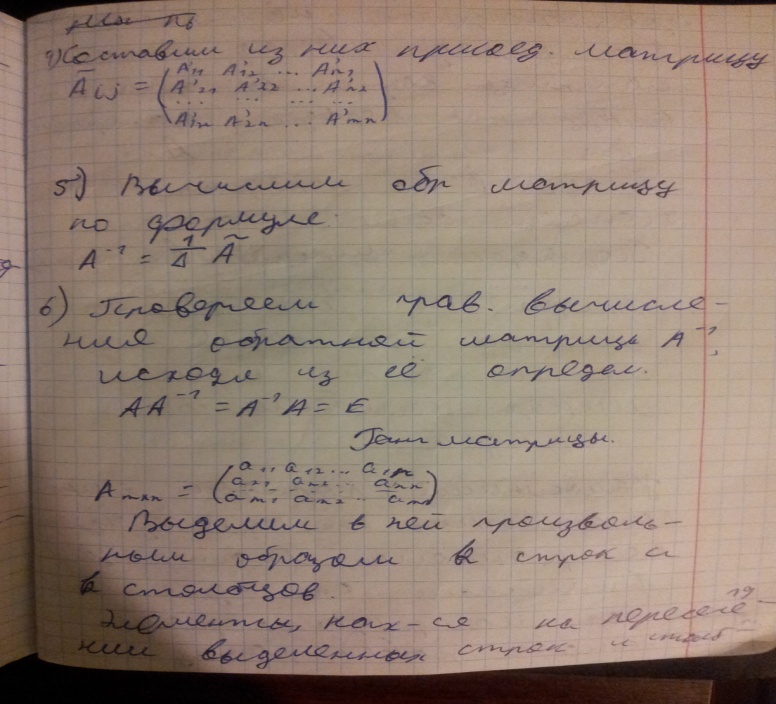 Составим из них присоед. матрицу
Ã ij = ( A'₁₁ A'₁₂ ... A'ₙ₁
A'₂₁ A'₂₂ ... A'ₙ₂
... ... ... ...
A'₁ₙ A'₂ₙ ... A'ₘₙ )
5) Вычислим обр матрицу
по формуле.
A⁻¹ = 1/Δ Ã
6) Проверяем прав. вычисле-
ния обратной матрицы A⁻¹,
исходя из её определ.
AA⁻¹ = A⁻¹A = E
Ранг матрицы.
Aₘₓₙ = ( a₁₁ a₁₂ ... a₁ₙ
aₘ₁ aₘ₂ ... )
Выделим в ней произволь-
ным образом k строк и
k столбцов.
Элементы, нах-ся на пересече-
нии выделенных строк и столб-